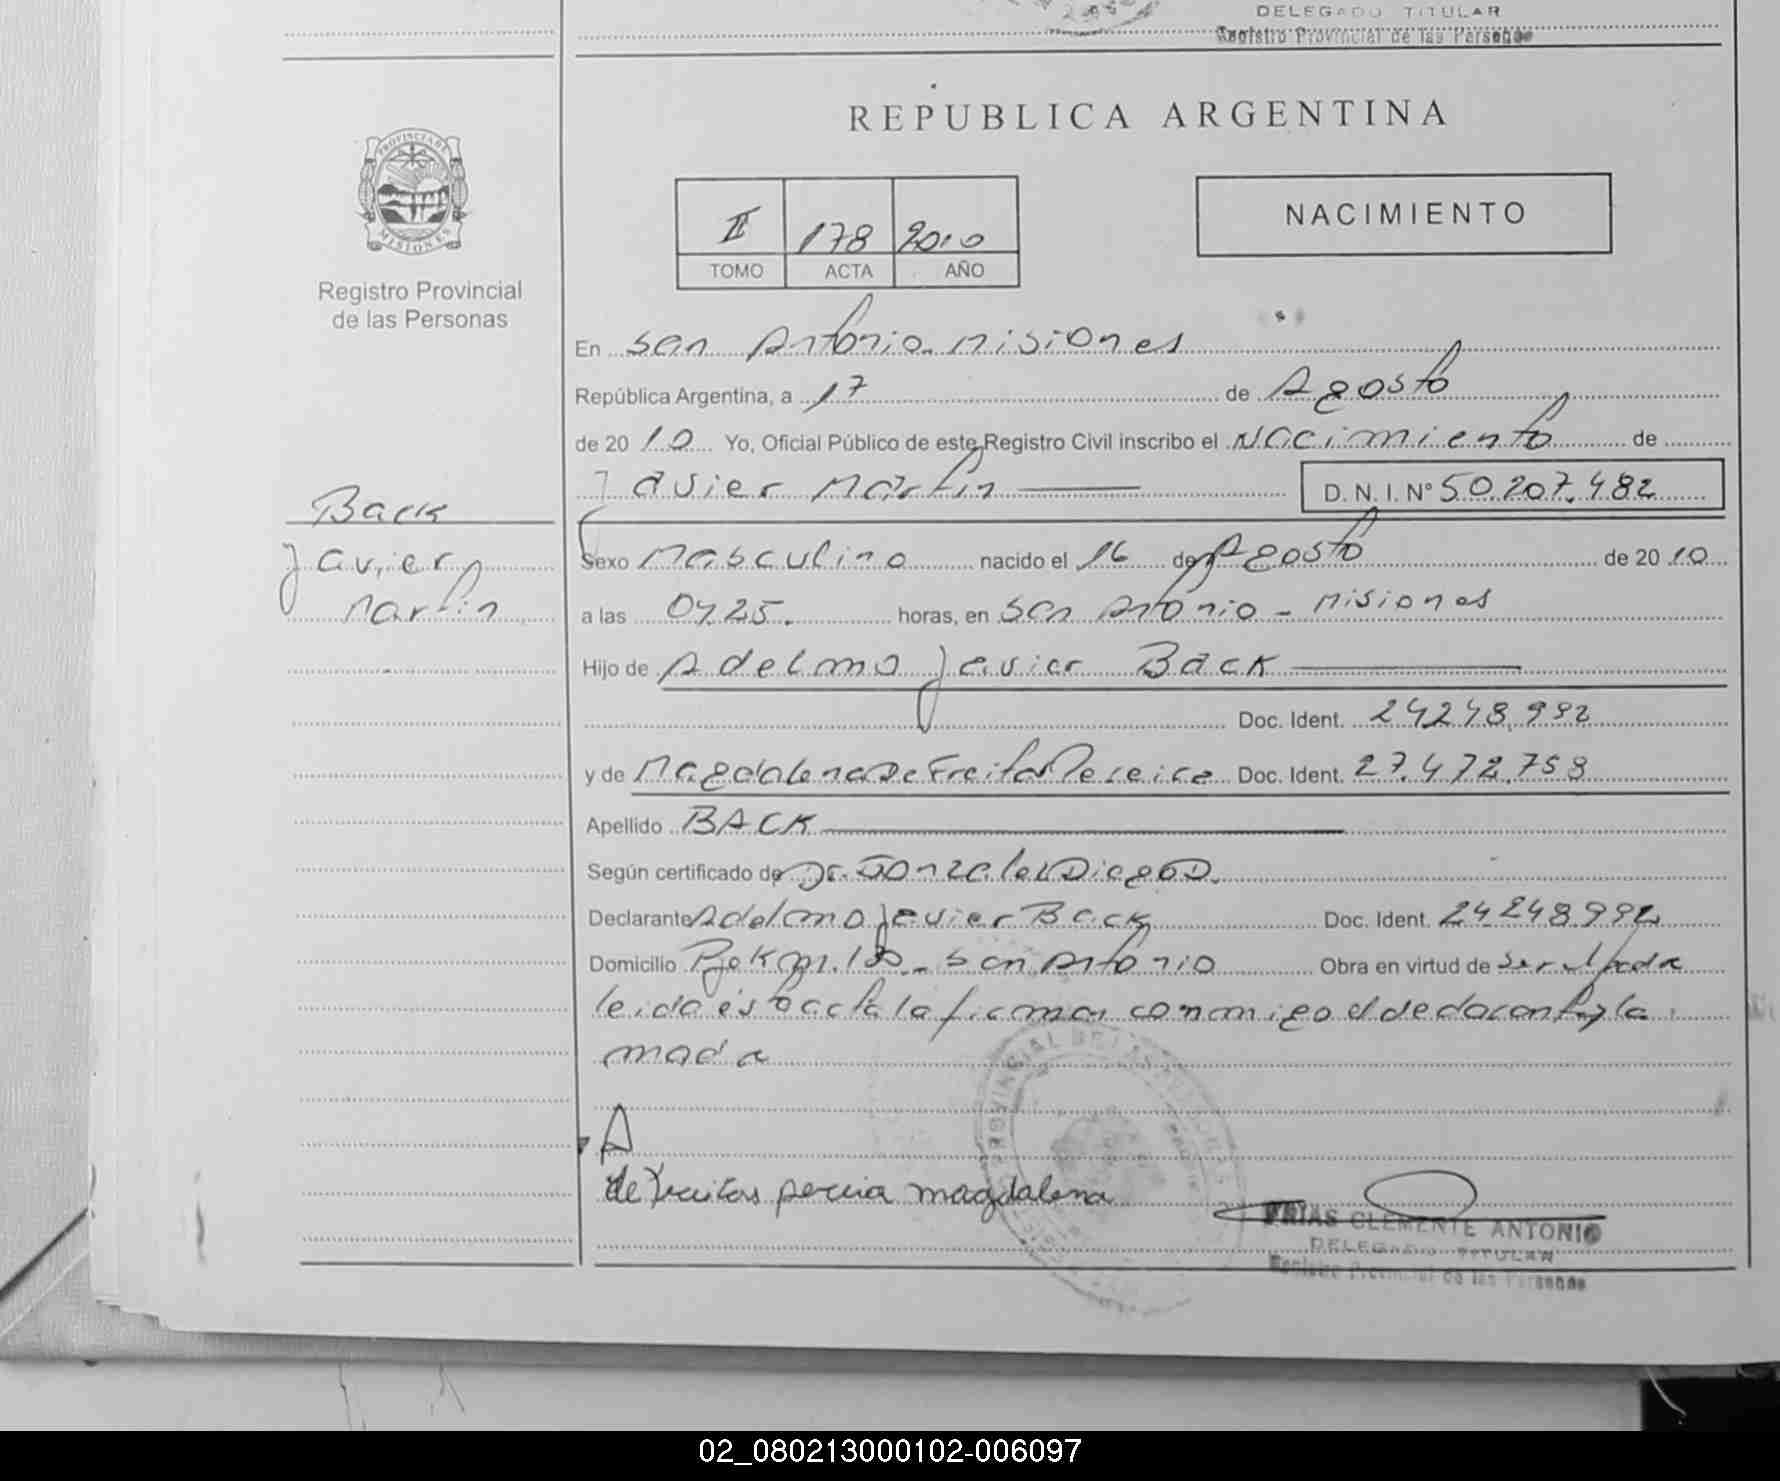 DELEGADO TITULAR
Registro Provincial de las Personas
REPUBLICA ARGENTINA
II 178 2010
TOMO ACTA AÑO
NACIMIENTO
PROVINCIA DE
MISIONES
Registro Provincial
de las Personas
Back
Javier
Martin
En San Antonio Misiones
República Argentina, a 17 de Agosto
de 2010 Yo, Oficial Público de este Registro Civil inscribo el Nacimiento de
Javier Martin D.N.I. Nº 50.207.482
Sexo Masculino nacido el 16 de Agosto de 2010
a las 04.25. horas, en San Antonio - Misiones
Hijo de Adelmo Javier Back
Doc. Ident. 24248.992
y de Magdalena De Freitas Pereira Doc. Ident. 27.472.758
Apellido BACK
Según certificado de Dr. Gonzalez Diego D.
Declarante Adelmo Javier Back Doc. Ident. 24248992
Domicilio Pje Km. 130 - San Antonio Obra en virtud de ser
leida esta acta la firma conmigo el declarante y la
mada
A
de Freitas pereira magdalena
FRIAS CLEMENTE ANTONIO
DELEGADO TITULAR
Registro Provincial de las Personas
02_080213000102-006097